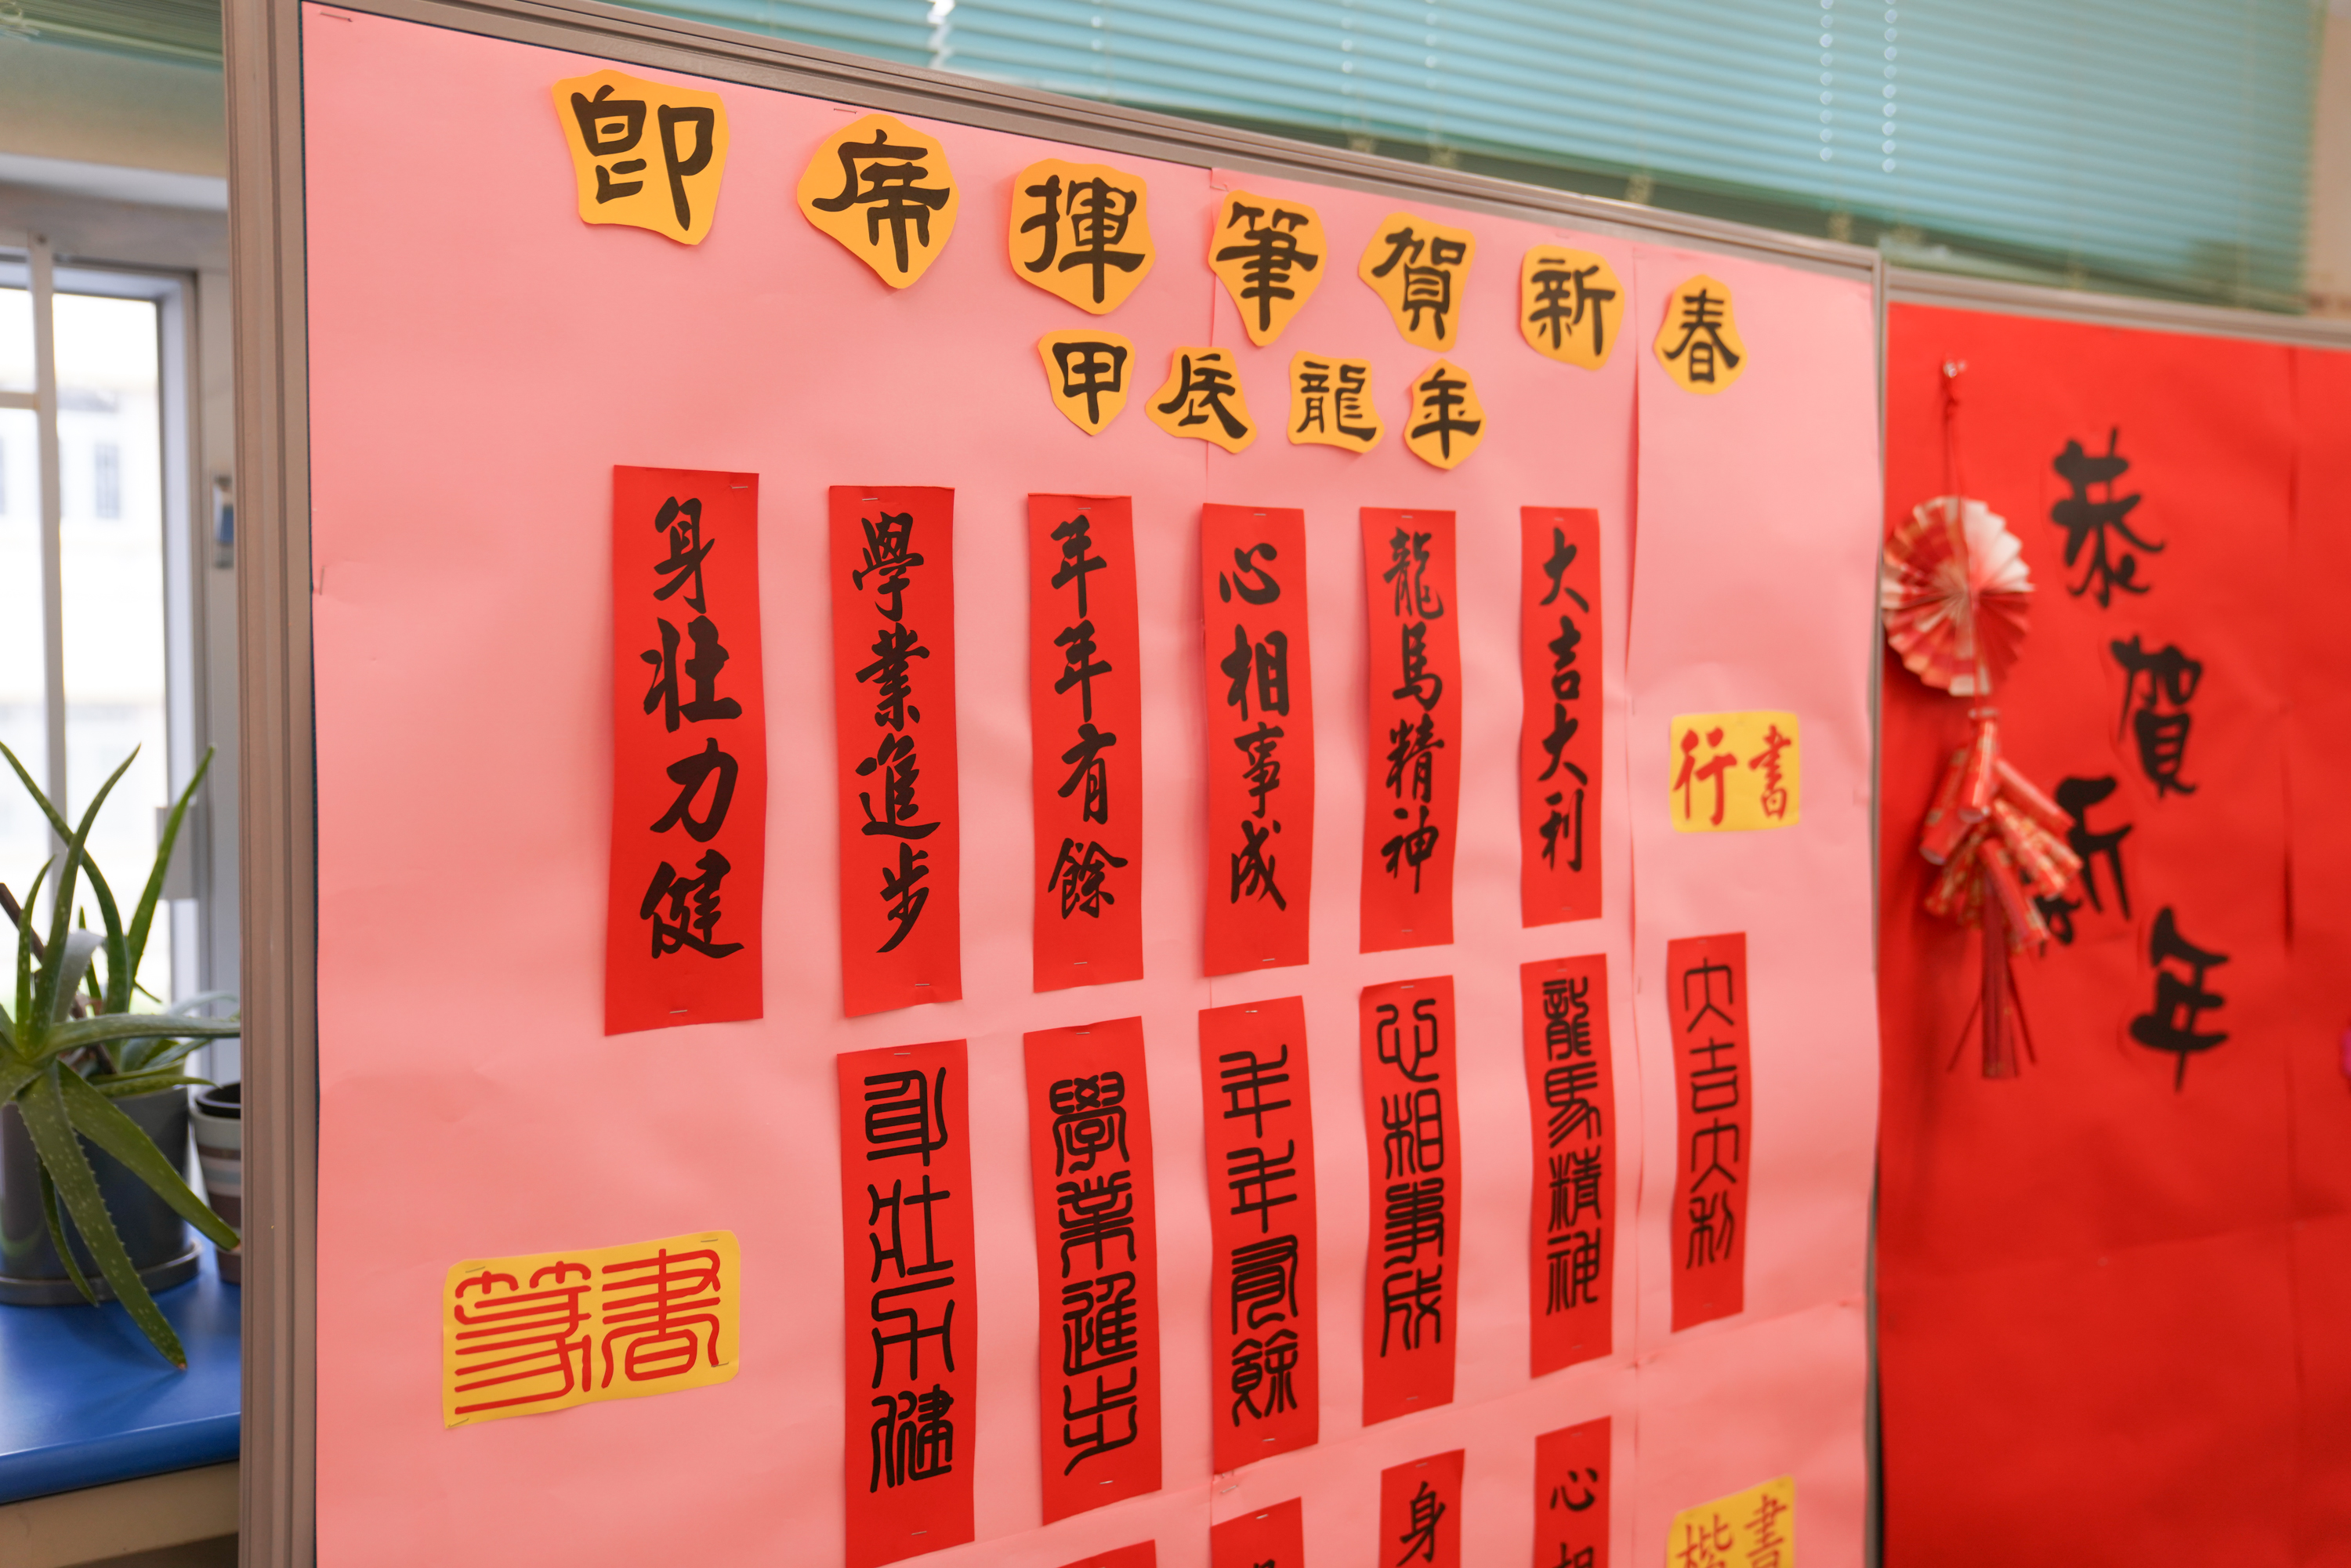 即席揮筆賀新春
甲辰龍年
身壯力健
學業進步
年年有餘
心相事成
龍馬精神
大吉大利
行書
篆書
身壯力健
學業進步
年年有餘
心相事成
龍馬精神
大吉大利
身
心相
楷書
恭賀新年